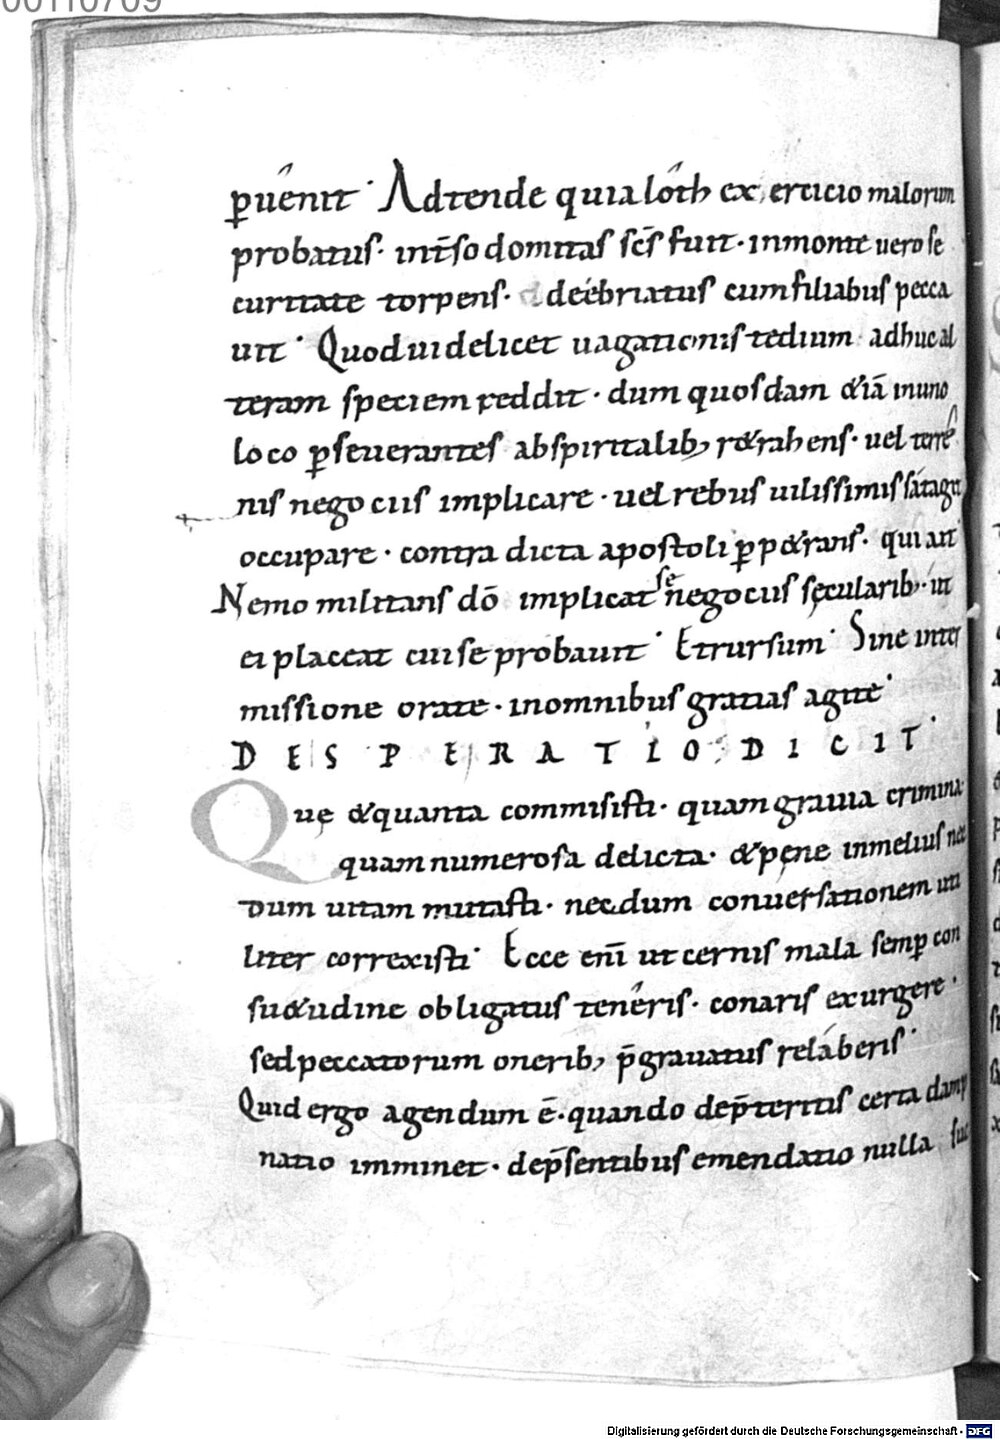 00110709
p̱uênit · Adtende quia lôth ex ercicio malorum
probatus · int̄ sodomitas sc̄s fuit · inmonte uero se
curitate torpens · deébriatus cum filiabus pecca
uit · Quod uidelicet uagationis tedium · adhuc al
teram speciem reddit · dum quosdam &iā inuno
loco p̱seuerantes abspiritalib; r&rahens · uel terre
nis negociis implicare · uel rebus uilissimis sátagit
occupare · contra dicta apostoli p̱p&rans · qui ait
Nemo militans dō implicat se negociis sęcularib; · ut
ei placeat cui se probauit · Et rursum · Sine inter
missione orate · inomnibus gratias agite ·
DESPERATIO · DICIT ·
Quę &quanta commisisti · quam grauia crimina
quam numerosa delicta · &pęne inmelius nec
dum uitam mutasti · necdum conuersationem uti
liter correxisti · Ecce enī ut cernis mala semp̱ con
su&udine obligatus tenêris · conaris exurgere ·
sed peccatorum onerib; p̄grauatus reláberis ·
Quid ergo agendum ē · quando dep̄teritis certa damp
natio imminet · dep̄sentibus emendatio nulla suc
Digitalisierung gefördert durch die Deutsche Forschungsgemeinschaft - DFG